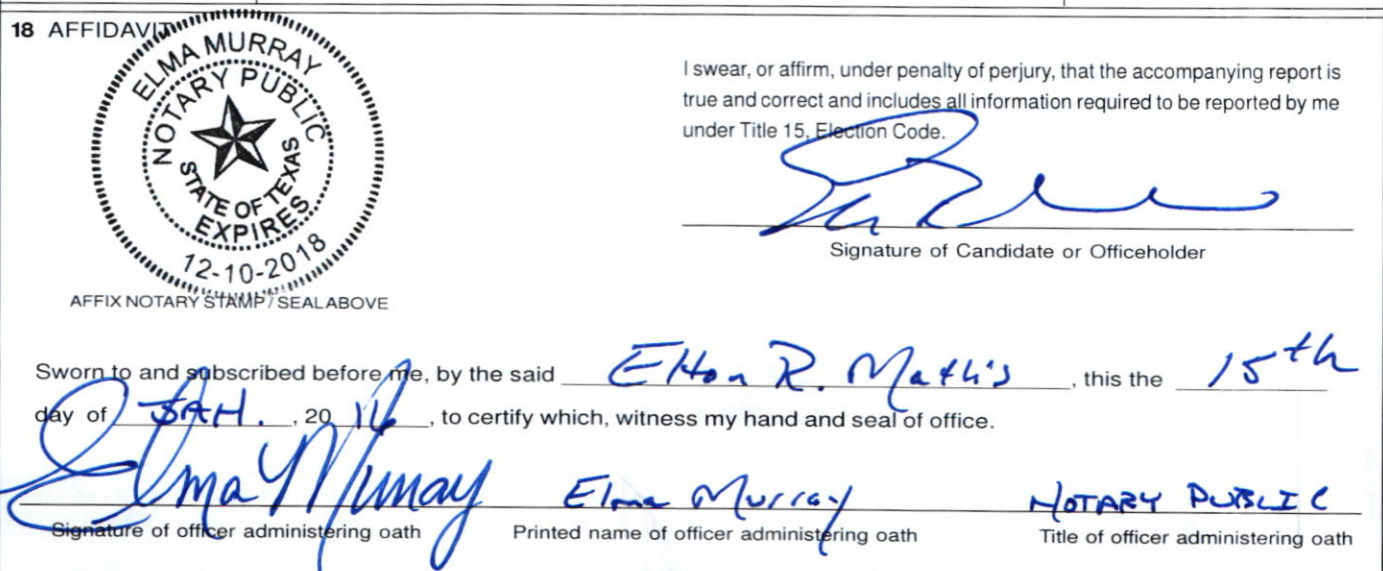 18 AFFIDAVIT
ELMA MURRAY
NOTARY PUBLIC
STATE OF TEXAS
EXPIRES
12-10-2018
AFFIX NOTARY STAMP / SEAL ABOVE
I swear, or affirm, under penalty of perjury, that the accompanying report is
true and correct and includes all information required to be reported by me
under Title 15, Election Code.
Signature of Candidate or Officeholder
Sworn to and subscribed before me, by the said Elton R. Mathis, this the 15th
day of JAN., 20 16, to certify which, witness my hand and seal of office.
Elma Murray Elma Murray NOTARY PUBLIC
Signature of officer administering oath Printed name of officer administering oath Title of officer administering oath